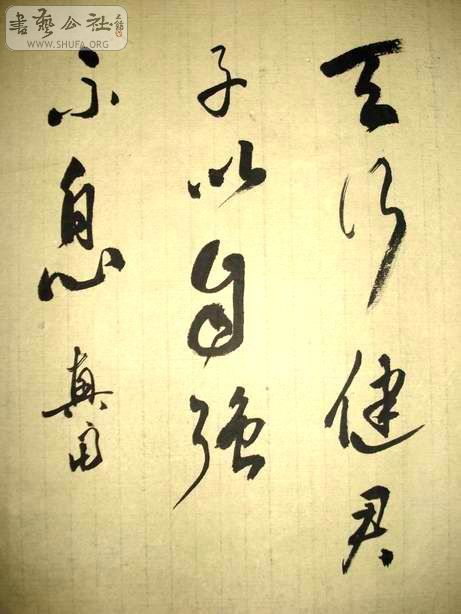 天行健君
子以自强
不息
真用
書藝公社
WWW.SHUFA.ORG